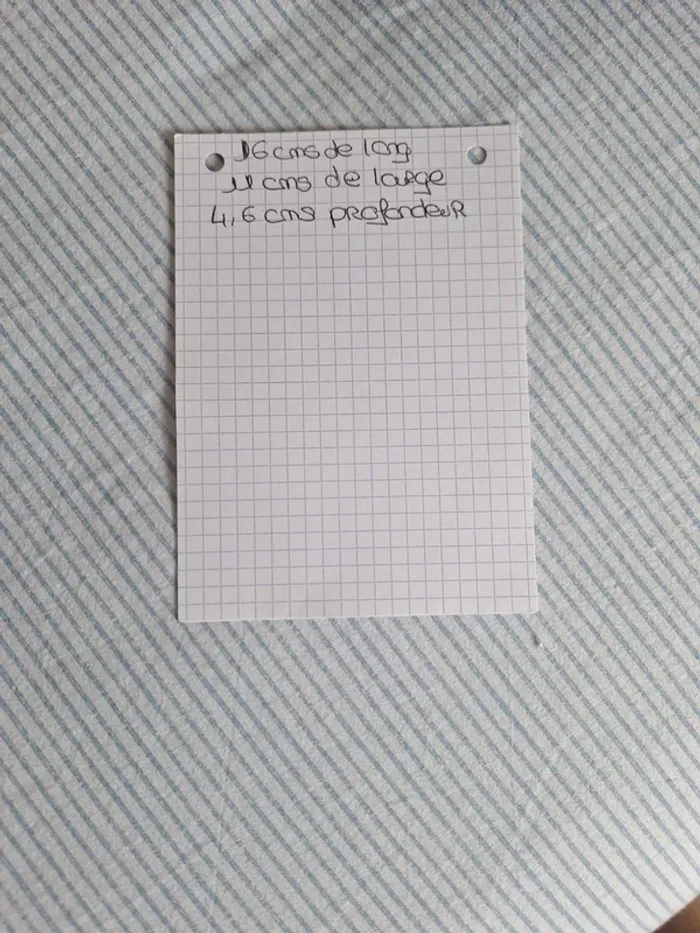 16 cms de long
11 cms de large
4,6 cms profondeur